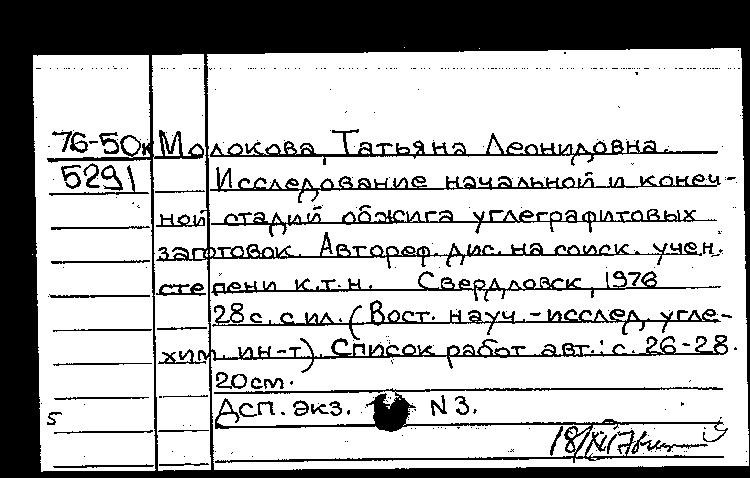 76-50к Молокова, Татьяна Леонидовна.
5291 Исследование начальной и конеч-
ной стадий обжига углеграфитовых
заготовок. Автореф. дис. на соиск. учен.
степени к.т.н. Свердловск, 1976
28 с. с ил. (Вост. науч.-исслед. угле-
хим. ин-т). Список работ авт.: с. 26-28.
20 см.
5 Дсп. экз. N 3.
18/XI